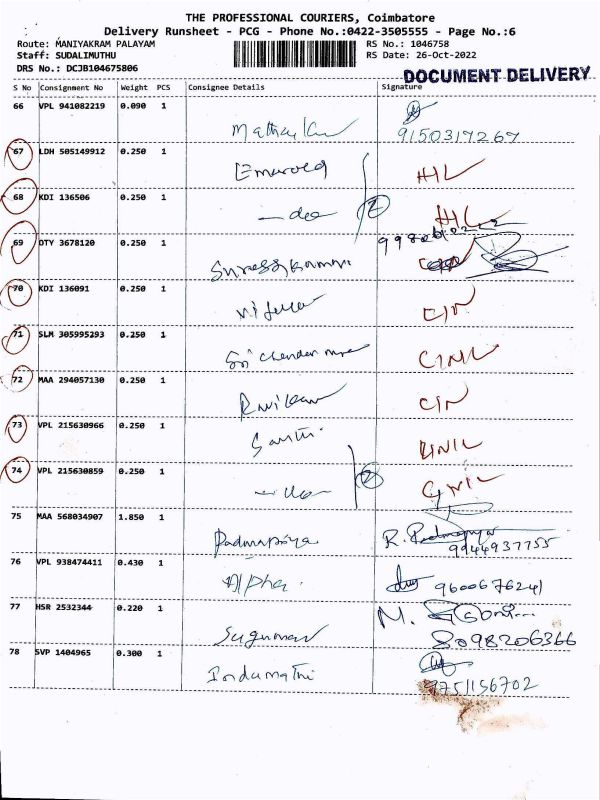 THE PROFESSIONAL COURIERS, Coimbatore
Delivery Runsheet - PCG - Phone No.:0422-3505555 - Page No.:6
Route: MANIYAKRAM PALAYAM RS No.: 1046758
Staff: SUDALIMUTHU RS Date: 26-Oct-2022
DRS No.: DCJB104675806
DOCUMENT DELIVERY
S No Consignment No Weight PCS Consignee Details Signature
66 VPL 941082219 0.090 1
9150317267
67 LDH 505149912 0.250 1 Emarold
68 KDI 136506 0.250 1 - do
69 DTY 3678120 0.250 1
70 KDI 136091 0.250 1
71 SLM 305995293 0.250 1
72 MAA 294057130 0.250 1
73 VPL 215630966 0.250 1 Santhi
74 VPL 215630859 0.250 1
75 MAA 568034907 1.850 1 Padmapriya R.
9944937755
76 VPL 938474411 0.430 1 Alpha 9600676241
77 HSR 2532344 0.220 1 Sugumar M.
8098206366
78 SVP 1404965 0.300 1 Indumathi
9751156702